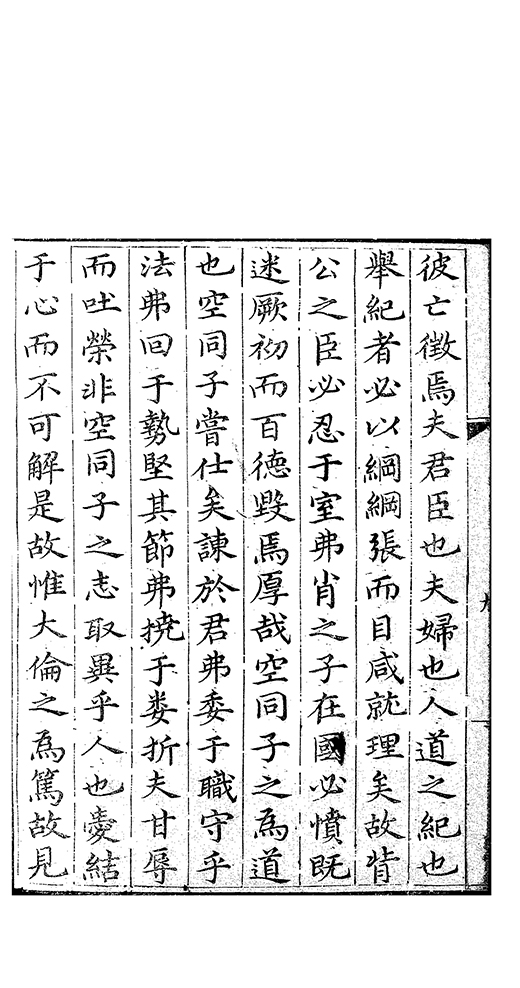 彼亡徵焉夫君臣也夫婦也人道之紀也
舉紀者必以綱綱張而目咸就理矣故背
公之臣必忍于室弗肖之子在國必憤既
迷厥初而百德毀焉厚哉空同子之為道
也空同子嘗仕矣諫於君弗委于職守乎
法弗回于勢堅其節弗撓于娄折夫甘辱
而吐榮非空同子之志取異乎人也憂結
于心而不可解是故惟大倫之為篤故見